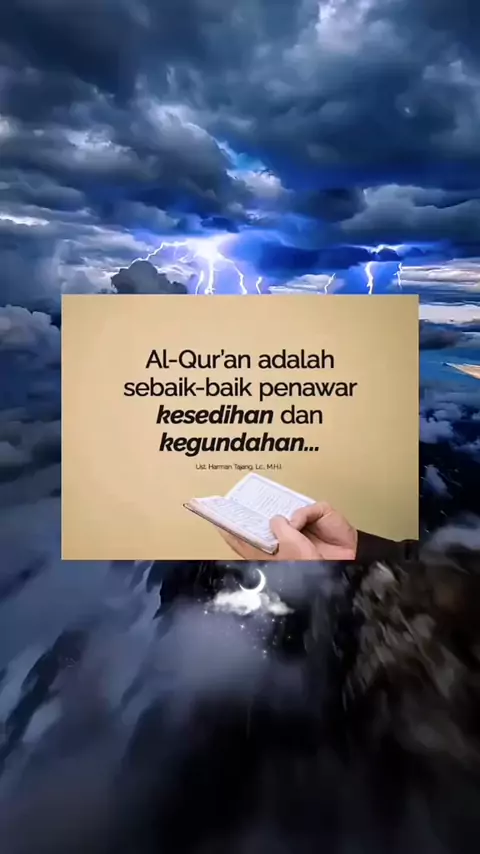 Al-Qur'an adalah
sebaik-baik penawar
kesedihan dan
kegundahan...
Ust. Harman Tajang, Lc., M.H.I.